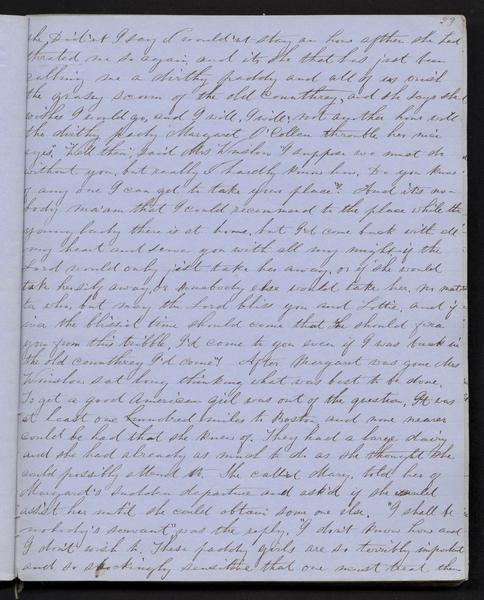 33
she Did'nt I say I would'nt stay an hour after she had
threated me so again, and its she that has just been
calling me a dirthy paddy and all of us Irish
the greasy scum of the old counthrey, and she says she
wishes I would go, and I will, I will, not another hour will
the dirthy Paddy Margaret O'Collen throuble her nice
eyes". "Well then," said Mrs Winslow "I suppose we must do
without you, but really I hardly know how. Do you know
of any one I can get to take your place?" And its no-
body ma'am that I could recommend to the place while the
young lady there is at home, but I'd come back with all
my heart and serve you with all my might if the
Lord would only jist take her away, or if she would
take herself away, or somebody else would take her, no mat
ter who, but may the Lord bliss you and Lottie, and if
iver the blissid time should come that He should free
you from this trobble I'd come to you even if I was back in
the old counthrey I'd come". After Margaret was gone Mrs
Winslow sat long thinking what was best to be done.
To get a good American girl was out of the question. It was
at least one hundred miles to Boston and none nearer
could be had that she knew of. They had a large dairy
and she had already as much to do as she thought she
could possibly attend to. She called Mary, told her of
Margaret's sudden departure and ask'd if she would
assist her until she could obtain some one else. "I shall be
nobody's servant" was the reply, "I don't know how and
I don't wish to. These paddy girls are so terribly important
and so shockingly sensitive that one must treat them